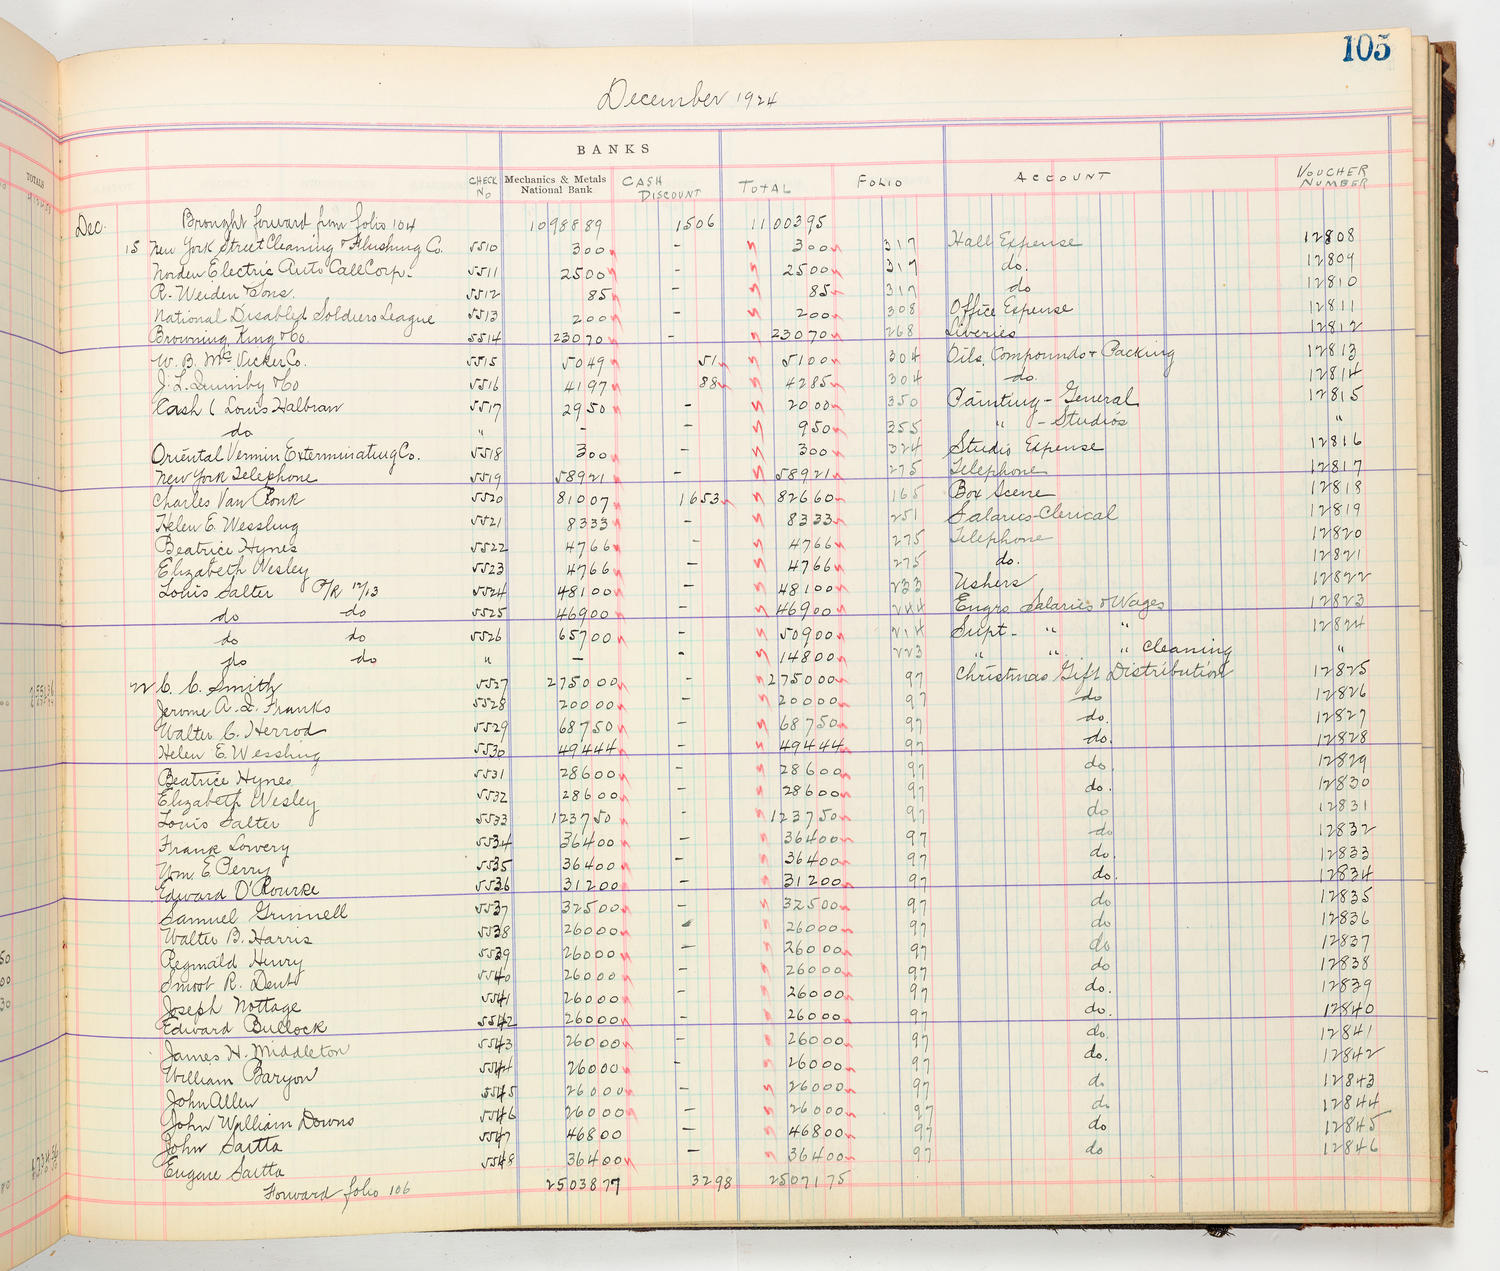 105
December 1924
BANKS
CHECK No Mechanics & Metals National Bank CASH DISCOUNT TOTAL FOLIO ACCOUNT VOUCHER NUMBER
TOTALS
Dec. Brought forward from folio 104 1098889 1506 1100395
15 New York Street Cleaning & Flushing Co. 5510 300 - 300 317 Hall Expense 12808
Norden Electric Auto Call Corp. 5511 2500 - 2500 317 do. 12809
R. Weiden & Sons. 5512 85 - 85 317 do 12810
National Disabled Soldiers League 5513 200 - 200 308 Office Expense 12811
Browning King & Co. 5514 23070 - 23070 268 Liveries 12812
W. B. McVicker Co. 5515 5049 51 5100 304 Oils, Compounds & Packing 12813
J. L. Quimby & Co 5516 4197 88 4285 304 do. 12814
Cash ( Louis Halbran 5517 2950 - 2000 350 Painting - General 12815
do " - - 950 355 " - Studios "
Oriental Vermin Exterminating Co. 5518 300 - 300 324 Studio Expense 12816
New York Telephone 5519 58921 - 58921 275 Telephone 12817
Charles Van Ronk 5520 81007 1653 82660 165 Box Scene 12818
Helen E. Wessling 5521 8333 - 8333 251 Salaries-Clerical 12819
Beatrice Hynes 5522 4766 - 4766 275 Telephone 12820
Elizabeth Wesley 5523 4766 - 4766 275 do. 12821
Louis Salter P/R 12/13 5524 48100 - 48100 233 Ushers 12822
do do 5525 46900 - 46900 244 Engrs. Salaries & Wages 12823
do do 5526 65700 - 50900 214 Supt- " " 12824
do do " - - 14800 223 " " " Cleaning "
22 C. C. Smith 5527 275000 - 275000 97 Christmas Gift Distribution 12825
Jerome A. Q. Franks 5528 20000 - 20000 97 do 12826
Walter C. Herrod 5529 68750 - 68750 97 do. 12827
Helen E. Wessling 5530 49444 - 49444 97 do. 12828
Beatrice Hynes 5531 28600 - 28600 97 do. 12829
Elizabeth Wesley 5532 28600 - 28600 97 do. 12830
Louis Salter 5533 123750 - 123750 97 do 12831
Frank Lowery 5534 36400 - 36400 97 do 12832
Wm. E. Perry 5535 36400 - 36400 97 do. 12833
Edward O'Rourke 5536 31200 - 31200 97 do. 12834
Samuel Grinnell 5537 32500 - 32500 97 do 12835
Walter B. Harris 5538 26000 - 26000 97 do 12836
Reginald Henry 5539 26000 - 26000 97 do 12837
Smoot R. Dent 5540 26000 - 26000 97 do 12838
Joseph Nottage 5541 26000 - 26000 97 do. 12839
Edward Bullock 5542 26000 - 26000 97 do. 12840
James H. Middleton 5543 26000 - 26000 97 do. 12841
William Baryon 5544 26000 - 26000 97 do. 12842
John Allen 5545 26000 - 26000 97 do 12843
John William Downs 5546 26000 - 26000 97 do 12844
John Saitta 5547 46800 - 46800 97 do 12845
Eugene Saitta 5548 36400 - 36400 97 do 12846
Forward folio 106 2503877 3298 2507175